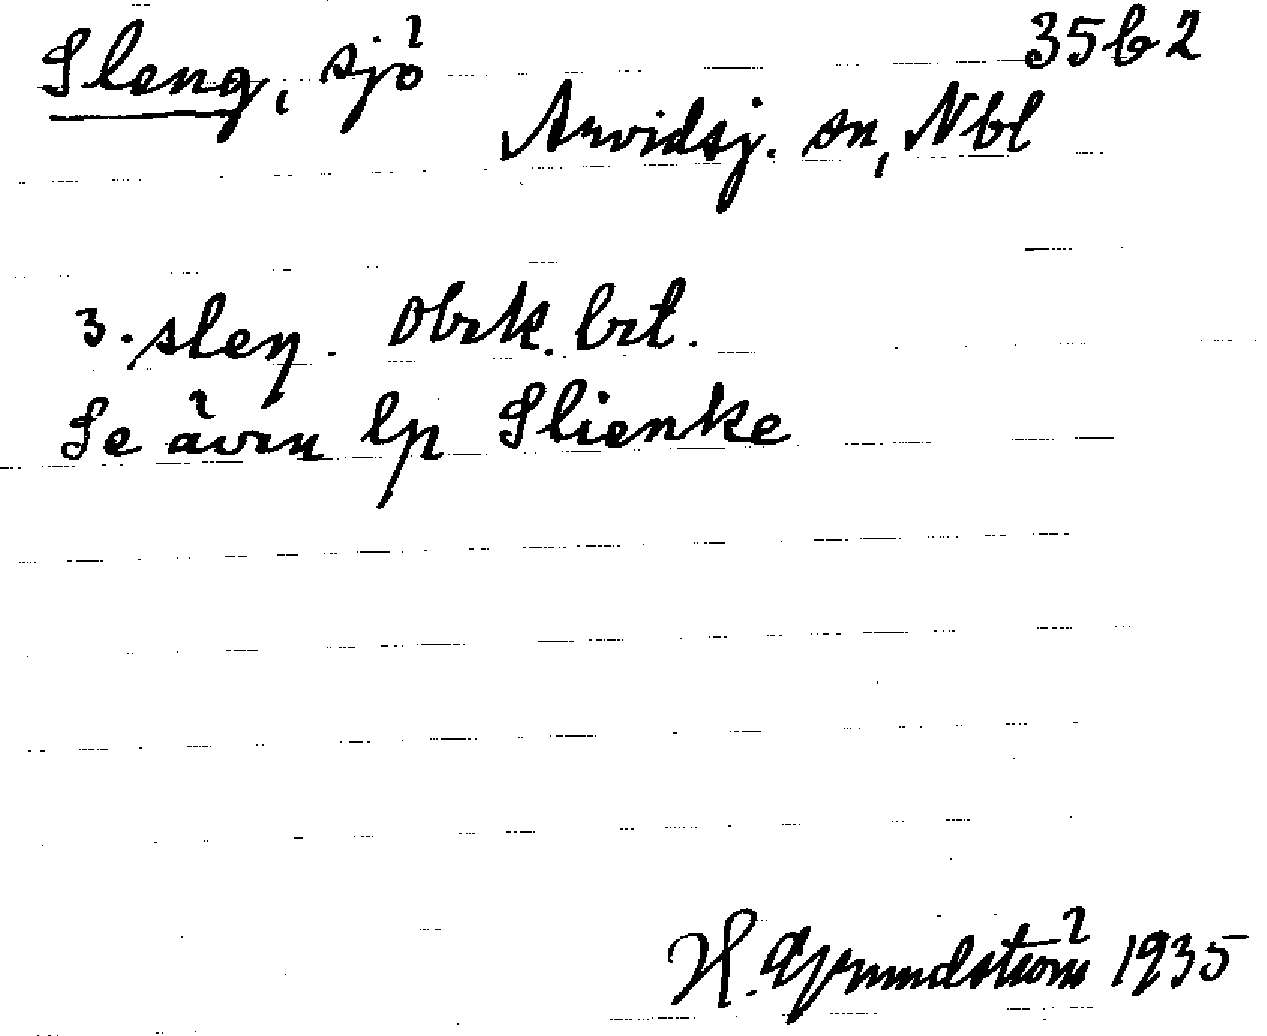 Sleng, sjö 35b2
Arvidsj. sn, Nbl
3. sleŋ. Obrk. brt.
Se även lp Slienke
H. Grundström 1935